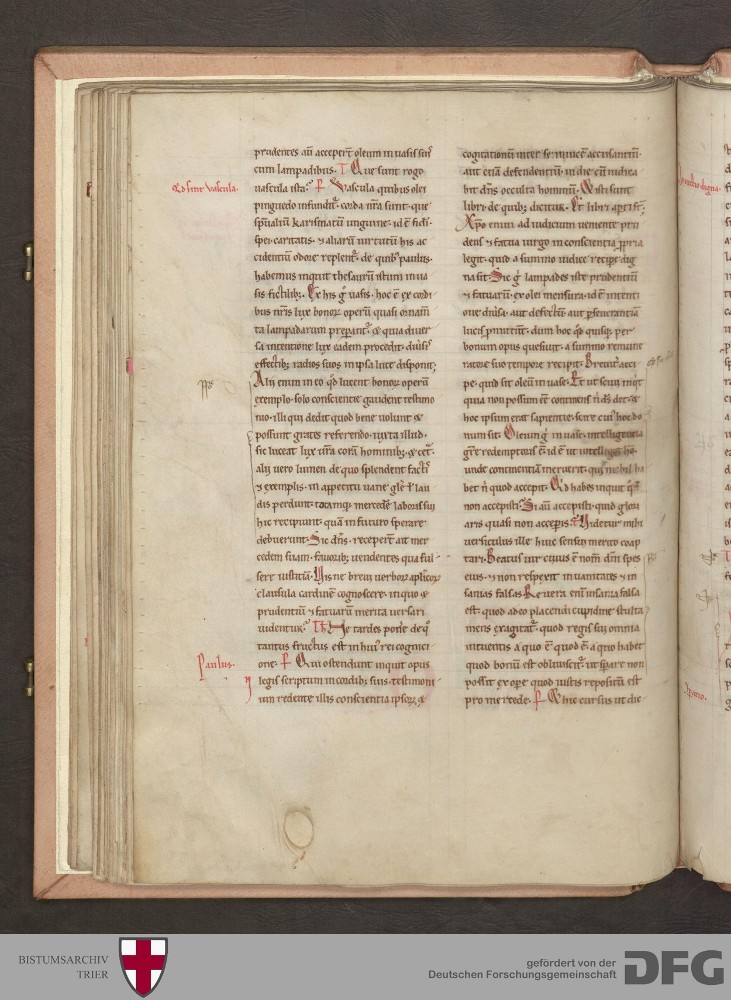 prudentes aū acceper̄t oleum in uasis suis
cum lampadibus. T Que sunt rogo
Qd sint uascula.
uascula ista. P Vascula quibus olei
pinguedo infundit̄. corda nr̄a sunt. que
sp̄ualiū karismatū unguine. id ē fidei.
spei. caritatis. & aliarū uirtutū his ac
cidentiū odore replent̄. de quib; paulus.
habemus inquit thesaurū istum in ua
sis fictilib;. Ex his g̊ uasis. hoc ē ex cordi
bus nr̄is lux bonoꝝ operū quasi ornam̄
ta lampadarum preparant̄. & quia diuer
sa intentione lux eadem procedit. diuersis
effectib; radios suos in ipsa luce disponit;
Alii enim in eo qd̄ lucent bonoꝝ operū
exemplo. solo conscientie gaudent testimo
nio. illi qui dedit quod bene uolunt &
possunt grates referendo. iuxta illud.
sic luceat lux ur̄a corā hominib;. & cet̄.
alii uero lumen de quo splendent factis
& exemplis. in appetitu uane glr̄ę l lau
dis perdunt. totamq; mercedē laboris sui
hic recipiunt. quā in futuro sperare
debuerunt. Sic dn̄s. receper̄t ait mer
cedem suam. fauorib; uendentes qua ful
sere iustitiā. His ne breui uerboꝝ aplicoꝝ
clausula cardinē cognoscere. in quo &
prudentiū & fatuarū merita uersari
uidentur. Th Ne tardes pone de q̊
tantus fructus est in hui' rei cognici
Paulus.
one. P Qui ostendunt inquit opus
legis scriptum in cordib; suis. testimoni
um redente illis conscientia ipsoꝝ. &
cogitationū inter se inuicē accusantiū.
aut etiā defendentiū. in die cū iudica
bit dn̄s occulta hominū. Qui sunt
libri de quib; dicitur. Et libri apti st̄.
Xp̄o enim ad iudicium ueniente pru
dens & fatua uirgo in conscientia ꝓpria
legit. quid a summo iudice recipere dig
na sit. Sic g̊ lampades iste prudentiū
& fatuarū. ex olei mensura. id ē intenti
one diuisa. aut defectū aut perseuerantiā
lucis ꝓmittunt. dum hoc qd̄ quisq; per
bonum opus quesiuit. a summo remune
ratore suo tempore recipit. Breuit̄ acci
pe. quid sit oleū in uase. Et ut sciui inqt̄
quia non possum eē continens n̄ ds̄ det. &
hoc ipsum erat sapientie. scire cui' hoc do
num sit. Oleum g̊ in uase. intelligentia
grę redemptoris ē. id ē ut intelligas ho
unde continentiā meruerit. quia nichil ha
bet n̄ quod accepit. Qd̄ habes inquit qd̄
non accepisti. Si aū accepisti. quid glori
aris quasi non acceperis. T Videtur mihi
uersiculus ille huic sensui merito coap
tari. Beatus uir cuius ē nom̄ dn̄i spes
eius. & non respexit in uanitates & in
sanias falsas. Re uera eni' insania falsa
est. quod adeo placendi cupidine stulta
mens exagitat̄. quod regis sui omnia
intuentis a quo ē quod ē. a quo habet
quod bonū est obliuiscit̄. ut sperare non
possit ex ope. quod iustis repositū est
pro mercede. P Q hic cursus ut dic
BISTUMSARCHIV
TRIER
gefördert von der
Deutschen Forschungsgemeinschaft
DFG